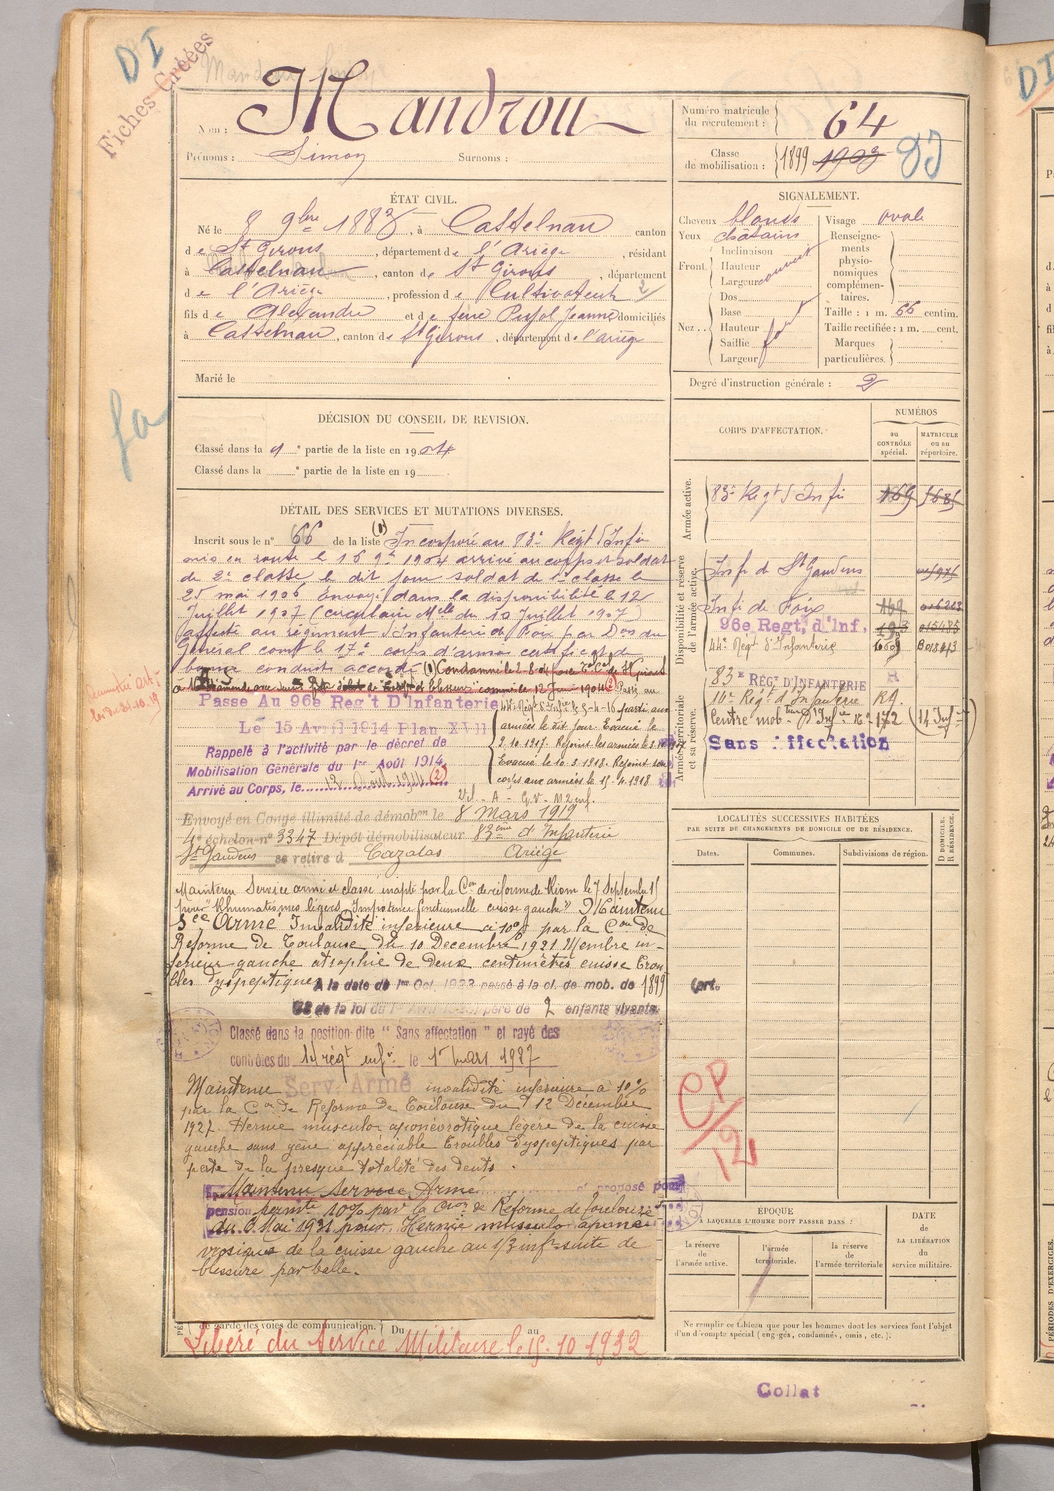 DI
Fiches Créées
Nom : Mandrou
Prénoms : Simon Surnoms :
Numéro matricule du recrutement : 64
Classe de mobilisation : 1899 1903
ÉTAT CIVIL.
Né le 8 9bre 1883, à Castelnau canton
de St Girons, département de l'Ariège, résidant
à Castelnau, canton de St Girons, département
de l'Ariège, profession de Cultivateur
fils de Alexandre et de feue Pujol Jeanne domiciliés
à Castelnau, canton de St Girons, département de l'ariège
Marié le
SIGNALEMENT.
Cheveux blonds
Yeux châtains
Front. Inclinaison
Hauteur
Largeur
Nez. Dos
Base
Hauteur
Saillie
Largeur
fort
Visage ovale
Renseignements physionomiques complémentaires.
Taille : 1 m. 66 centim.
Taille rectifiée : 1 m. cent.
Marques particulières.
Degré d'instruction générale : 2
DÉCISION DU CONSEIL DE REVISION.
Classé dans la 1e partie de la liste en 1904
Classé dans la e partie de la liste en 19
CORPS D'AFFECTATION.
NUMÉROS
au contrôle spécial.
matricule ou au répertoire.
Armée active.
83e Régt d'Infie 169 5685
Disponibilité et réserve de l'armée active.
Infie de St Gaudens
Infie de Foix
96e Regt, d'Inf,
44e Régt d'Infanterie
Armée territoriale et sa réserve.
83e RÉGT D'INFANTERIE R
14e Régt d'Infanterie R9.
Centre mobon d'Infie 172 (14 Infie)
Sans Affectation
DÉTAIL DES SERVICES ET MUTATIONS DIVERSES.
Inscrit sous le n° 66 de la liste (1) Incorporé au 83e Régt d'Infie
mis en route le 16 9bre 1904 arrivé au corps et soldat
de 2e classe le dit jour soldat de 1e classe le
25 mai 1906 Envoyé dans la disponibilité le 12
Juillet 1907 (circulaire Mlle du 10 Juillet 1907)
affecté au régiment d'Infanterie de Foix par Don du
Général comt le 17e corps d'armée certificat de
bonne conduite accordé (1) Condamné le
Passé au
Passe Au 96e Reg't D'Infanterie
Le 15 Avril 1914 Plan XVII
Rappelé à l'activité par le décret de
Mobilisation Générale du 1er Août 1914
Arrivé au Corps, le 12 Août 1914 (2)
44e Régt d'Infie le 5-4-16 parti aux
armées le dit jour. Evacué le
2.10.1917. Rejoint les armées le
Evacué le 10.3.1918. Rejoint son
corps aux armées le 15.4.1918
Envoyé en Congé illimité de démobon le 8 Mars 1919
4e échelon n° 3347 Dépôt démobilisateur 83eme d'Infanterie
St Gaudens se retire à Cazalas Ariège
Maintenu Service armé et classe inapte par la Con de réforme de Riom le 7 Septembre 1
pour "Rhumatismes légers, Impotence fonctionnelle cuisse gauche" Maintenu
Sce Armé Invalidité inférieure à 10% par la Con de
Réforme de Toulouse du 10 Decembre 1921 Membre in-
férieur gauche atrophié de deux centimètres cuisse Trou-
bles dyspeptiques A la date du 1er Oct. 1922 passé à la cl. de mob. de 1899
de la loi du 1er Avril père de 2 enfants vivants
Classé dans la position dite " Sans affectation " et rayé des
contrôles du 14 régt infie le 1er mars 1927
Maintenu Serv. Armé invalidité inférieure à 10%
par la Con de Réforme de Toulouse du 12 Décembre
1927. Hernie musculo aponévrotique légère de la cuisse
gauche sans gêne appréciable Troubles dyspeptiques par
perte de la presque totalité des dents.
Maintenu Service Armé et proposé pour
pension permte 10% par la Con de Réforme de Toulouse
du 6 Mai 1931 pour Hernie musculo aponé-
vrosique de la cuisse gauche au 1/3 infr suite de
blessure par balle.
de garde des voies de communication.) Du au
Libéré du Service Militaire le 15-10-1932
LOCALITÉS SUCCESSIVES HABITÉES
PAR SUITE DE CHANGEMENTS DE DOMICILE OU DE RÉSIDENCE.
Dates. Communes. Subdivisions de région.
D DOMICILE. R RÉSIDENCE.
CP/12
ÉPOQUE
À LAQUELLE L'HOMME DOIT PASSER DANS :
la réserve de l'armée active.
l'armée territoriale.
la réserve de l'armée territoriale
DATE de LA LIBÉRATION du service militaire.
Ne remplir ce tableau que pour les hommes dont les services font l'objet
d'un décompte spécial (engagés, condamnés, omis, etc.).
Collat
DI
PÉRIODES D'EXERCICES.